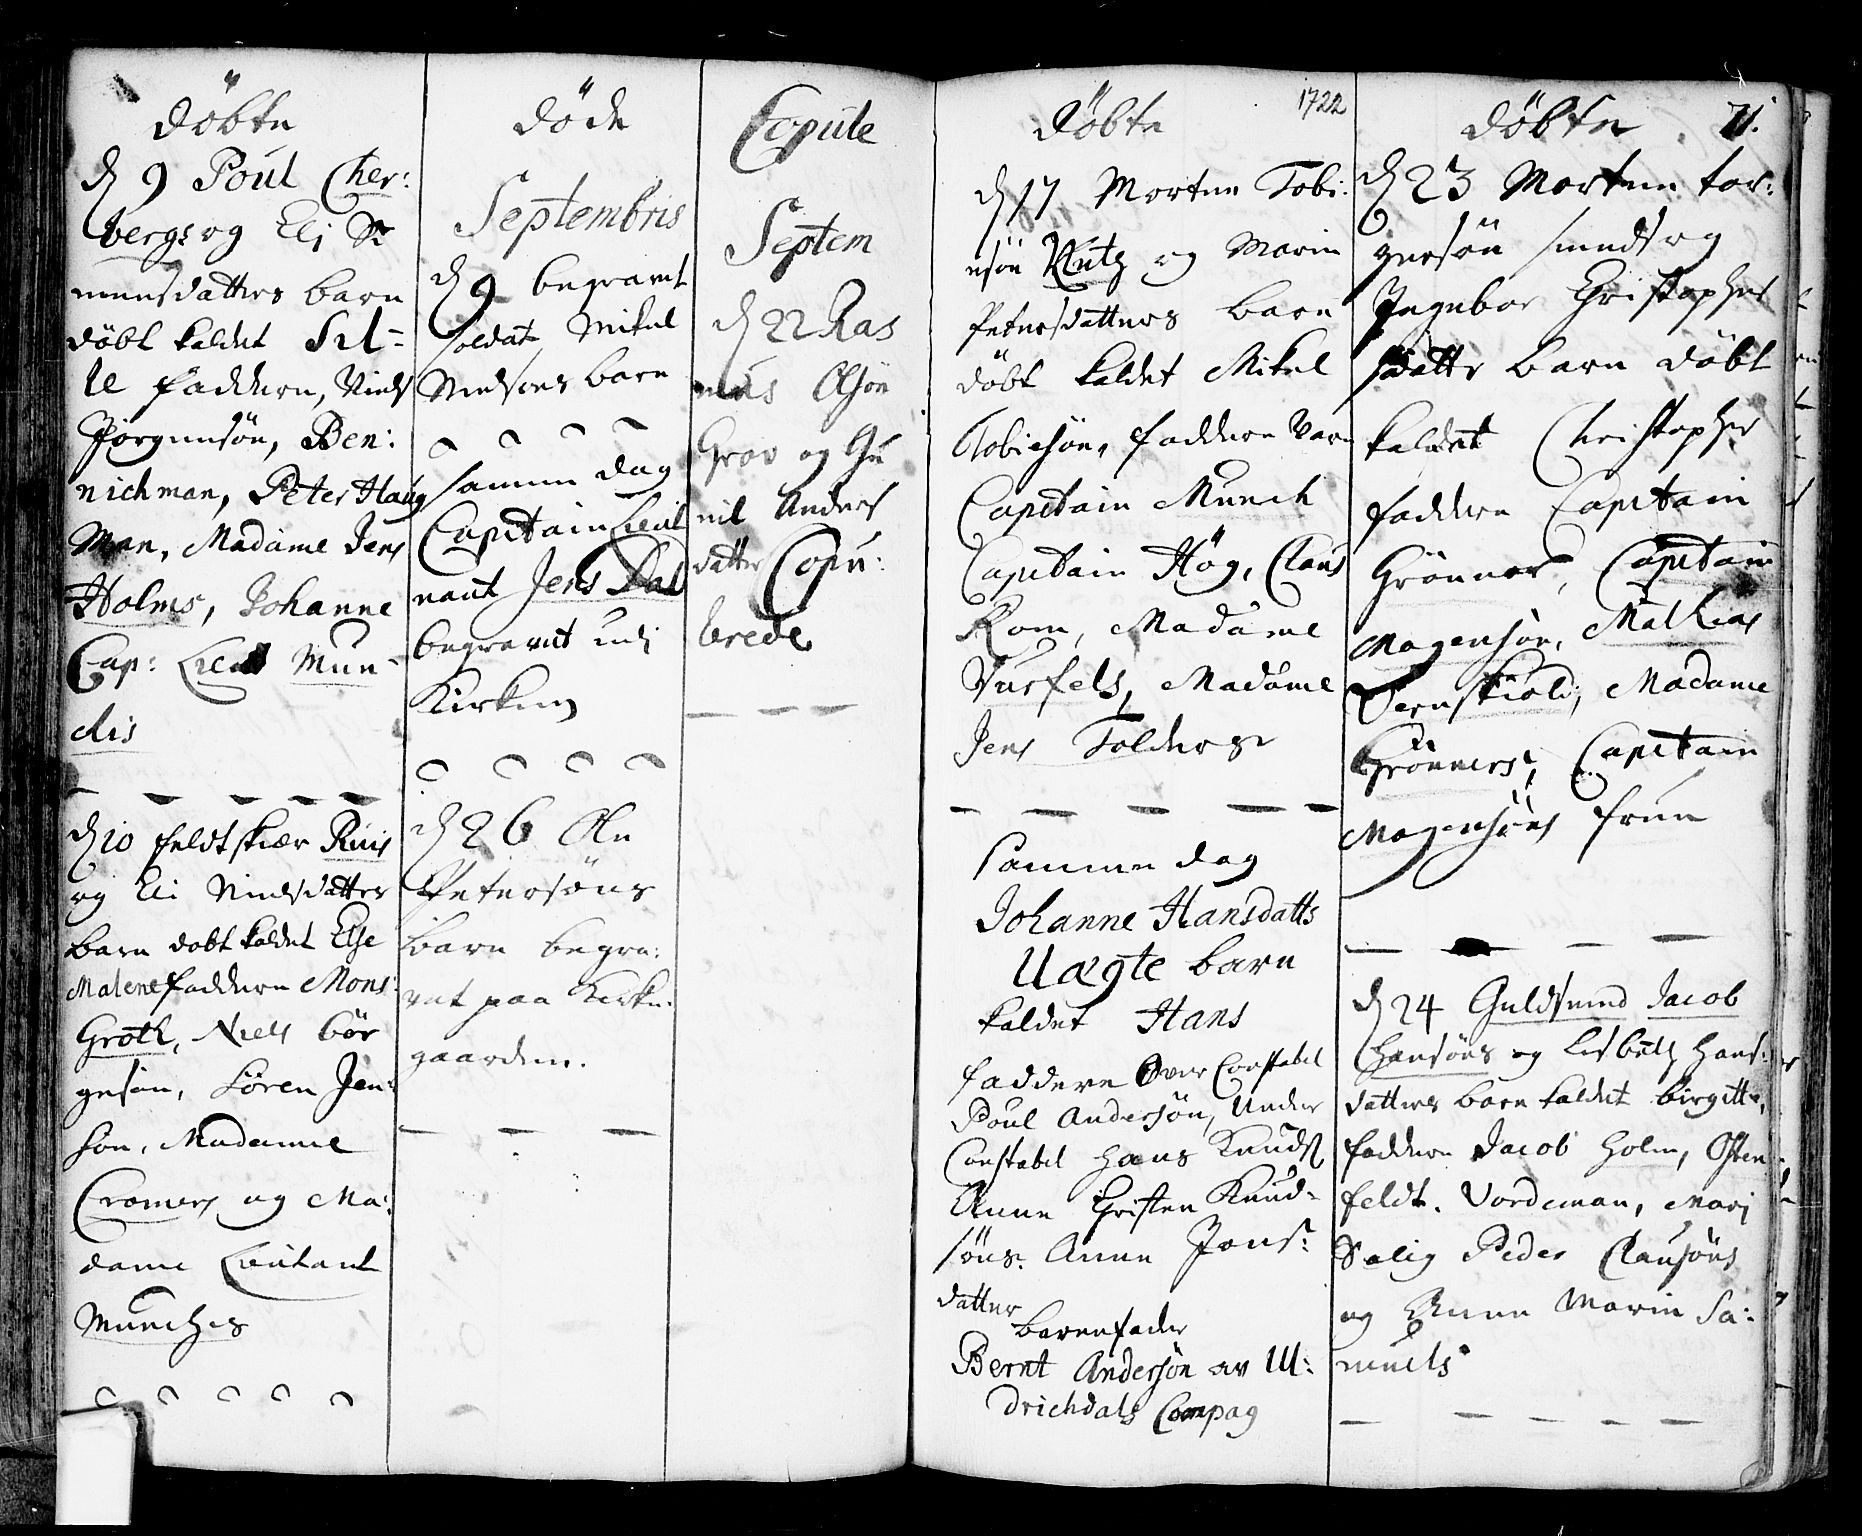 döbte
d 9 Poul Cher:
bergs og Eli Si
mensdatters barn
döbt kaldet Sil-
le faddere, Niels
Jörgensön, Ben:
nichman, Peter Haug
Man, Madame Jens
Holms, Johanne
Cap: Lieut Mun-
chis
d 10 feldtskiær Ruus
og Eli Nielsdatters
barn döbt kaldet Else
Malene faddere Mons:
Groth, Niels bör
gesön, Sören Jen:
sön, Madame
Cramers og Ma:
dame Lieutant
Münches
döde
Septembris
d 9 begravet
soldat Mikel
Nielsens barn
samme dag
Capitain Lieut
nant Jens Dal
begravet udj
Kirken
d 26 Ole
Petersöns
barn begra:
vet paa Kirke:
gaarden.
Copule
Septem
d 22 Ras
mus Olsön
Grov og Gu
nil Anders
datter Copu:
lerede
döbte
1722
d 17 Morten Tobi:
esön Klutz og Marin
Petersdatters barn
döbt kaldet Mikel
Tobiesön, faddere vare
Capitain Munch
Capitain Hög, Claus
Rom, Madame
Vurfels, Madame
Jens Tolders
samme dag
Johanne Hansdatts
Uægte barn
kaldet Hans
faddere Over Constabel
Poul Andersön, Under
Constabel Hans Knuds
Anne Christen Knud-
söns. Anne Jons:
datter
barnefader
Bernt Andersön av Ul:
drichdals Compag
döbte
71.
d 23 Morten tor:
gersön smeds og
Ingebor Christopher
sdatter barn döbt
kaldet Christopher
faddere Capitain
Grönner, Capitain
Mogensön, Mathias
Ternskiold, Madame
Grönners, Capitain
Mogensöns frue
d 24 Guldsmed Jacob
Hansöns og Lisbeth Hans:
datters barn kaldet birgitte,
faddere Jacob Holm, Osten
feldt. Vordeman, Marj
Salig Peder Clausöns
og Anne Marin Sa:
muels